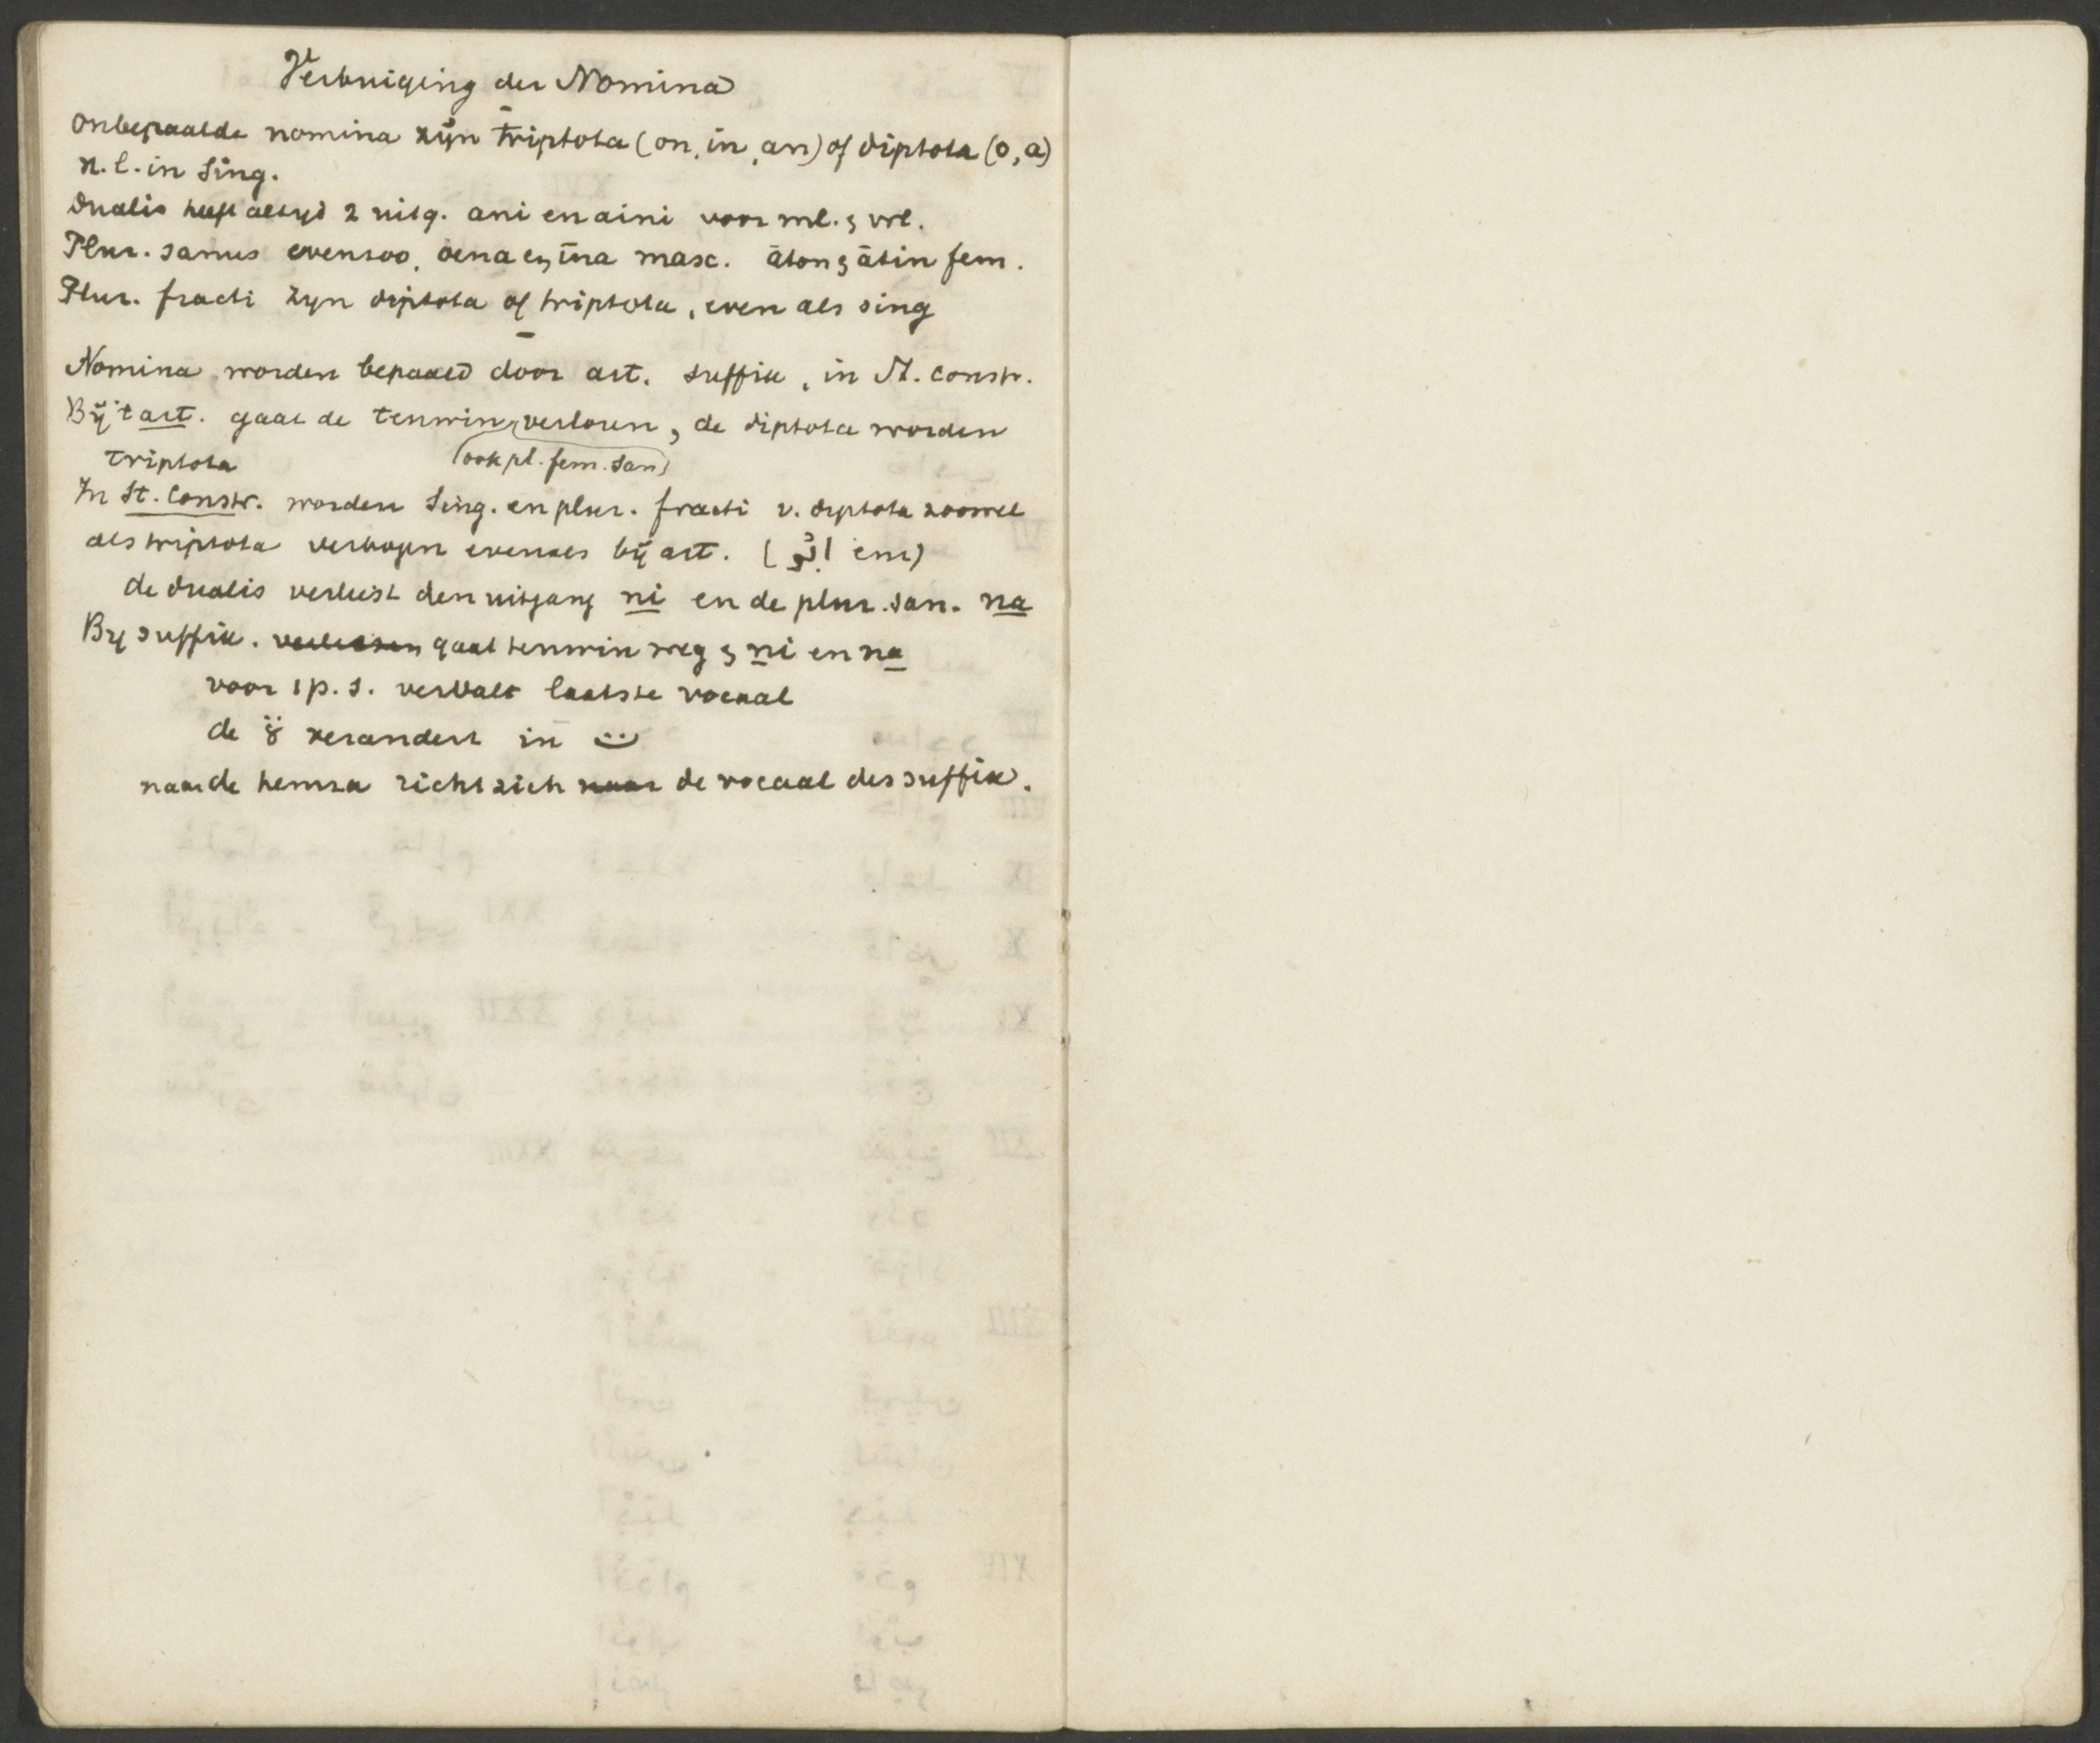 Verbuiging der Nomina
Onbepaalde nomina zijn triptota (on, in, an) of diptota (o, a)
n.l. in Sing.
Dualis heeft altyd 2 uitg. ani en aini voor ml. & vrl.
Plur. sanus evenzoo, oena en īna masc. āton & ātin fem.
Plur. fracti zyn diptota of triptota, even als sing
Nomina worden bepaald door art. suffix, in St. constr.
Bij 't art. gaat de tenwin verloren, de diptota worden
triptota (ook pl. fem. san)
In St. Constr. worden Sing. en plur. fracti v. diptota zoowel
als triptota verbogen evenals bij art. (ابو enz)
de dualis verliest den uitgang ni en de plur. san. na
By suffix. verliezen gaat tenwin weg & ni en na
voor 1 p. s. vervalt laatste vocaal
de ة verandert in ت
naar de hemza richt zich naar de vocaal des suffix.